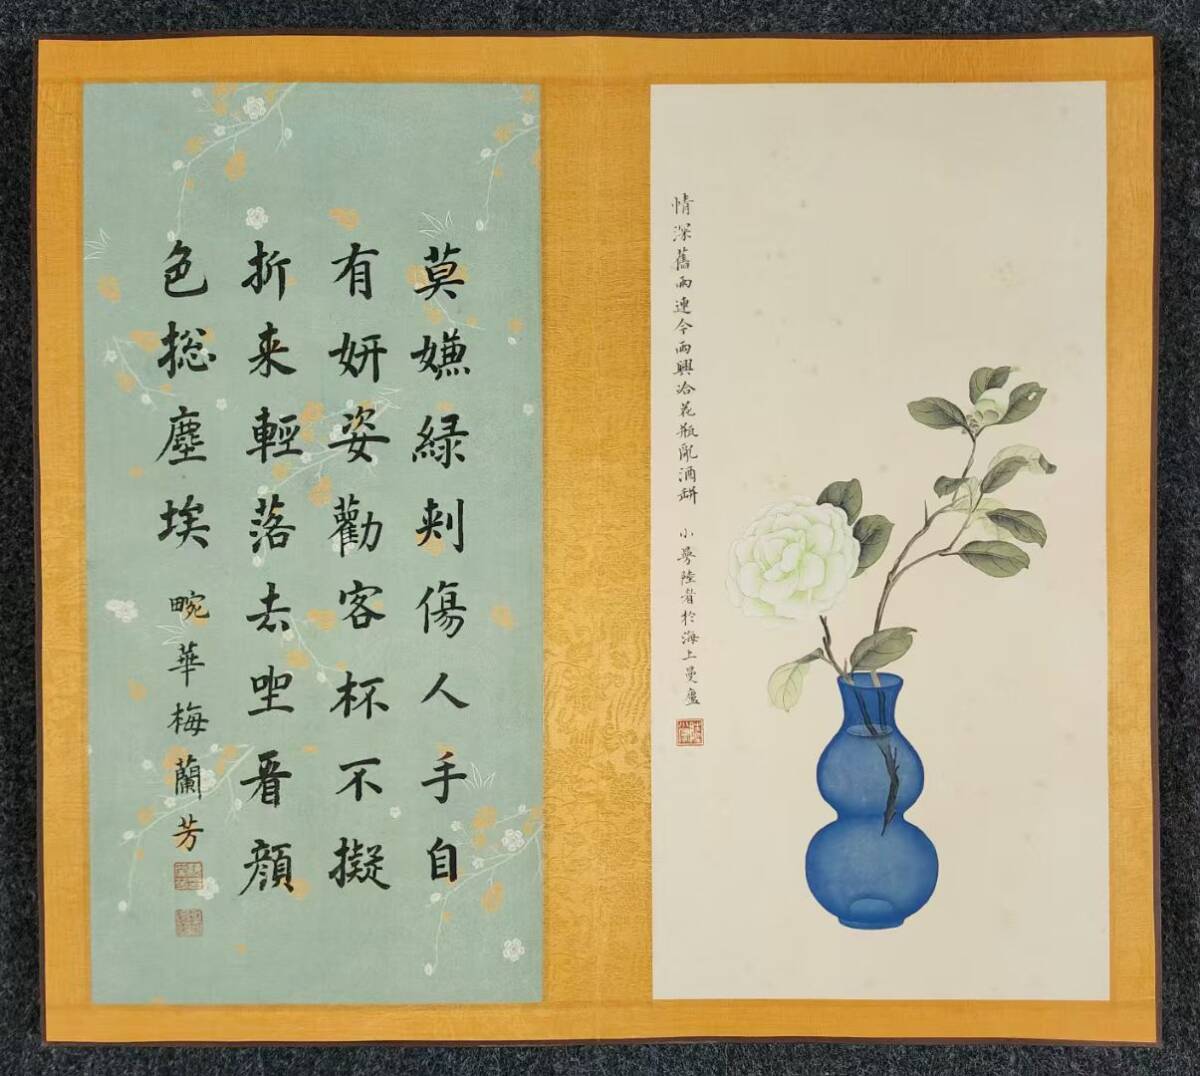 莫嫌緑刺傷人手自
有妍姿勸客杯不擬
折来輕落去坐看顔
色揔塵埃
畹華梅蘭芳
情深舊雨連今雨興洽花瓶亂酒缾
小曼陸眉於海上曼廬